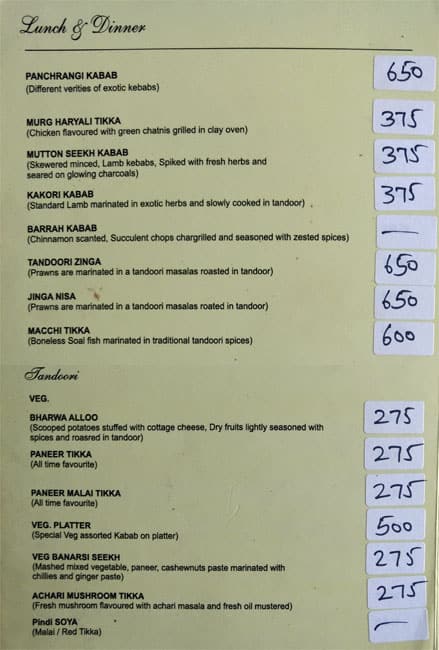 Lunch & Dinner
PANCHRANGI KABAB 650
(Different verities of exotic kebabs)
MURG HARYALI TIKKA 375
(Chicken flavoured with green chatnis grilled in clay oven)
MUTTON SEEKH KABAB 375
(Skewered minced, Lamb kebabs, Spiked with fresh herbs and
seared on glowing charcoals)
KAKORI KABAB 375
(Standard Lamb marinated in exotic herbs and slowly cooked in tandoor)
BARRAH KABAB —
(Chinnamon scanted, Succulent chops chargrilled and seasoned with zested spices)
TANDOORI ZINGA 650
(Prawns are marinated in a tandoori masalas roasted in tandoor)
JINGA NISA 650
(Prawns are marinated in a tandoori masalas roated in tandoor)
MACCHI TIKKA 600
(Boneless Soal fish marinated in traditional tandoori spices)
Tandoori
VEG.
BHARWA ALLOO 275
(Scooped potatoes stuffed with cottage cheese, Dry fruits lightly seasoned with
spices and roasred in tandoor)
PANEER TIKKA 275
(All time favourite)
PANEER MALAI TIKKA 275
(All time favourite)
VEG. PLATTER 500
(Special Veg assorted Kabab on platter)
VEG BANARSI SEEKH 275
(Mashed mixed vegetable, paneer, cashewnuts paste marinated with
chillies and ginger paste)
ACHARI MUSHROOM TIKKA 275
(Fresh mushroom flavoured with achari masala and fresh oil mustered)
Pindi SOYA —
(Malai / Red Tikka)